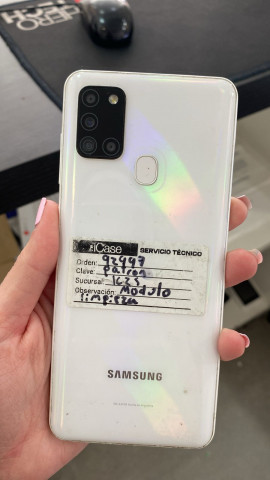 AERO
TECH
iCase SERVICIO TÉCNICO
Orden: 92997
Clave: patron
Sucursal: IC23
Observación: Modulo
limpieza
SAMSUNG